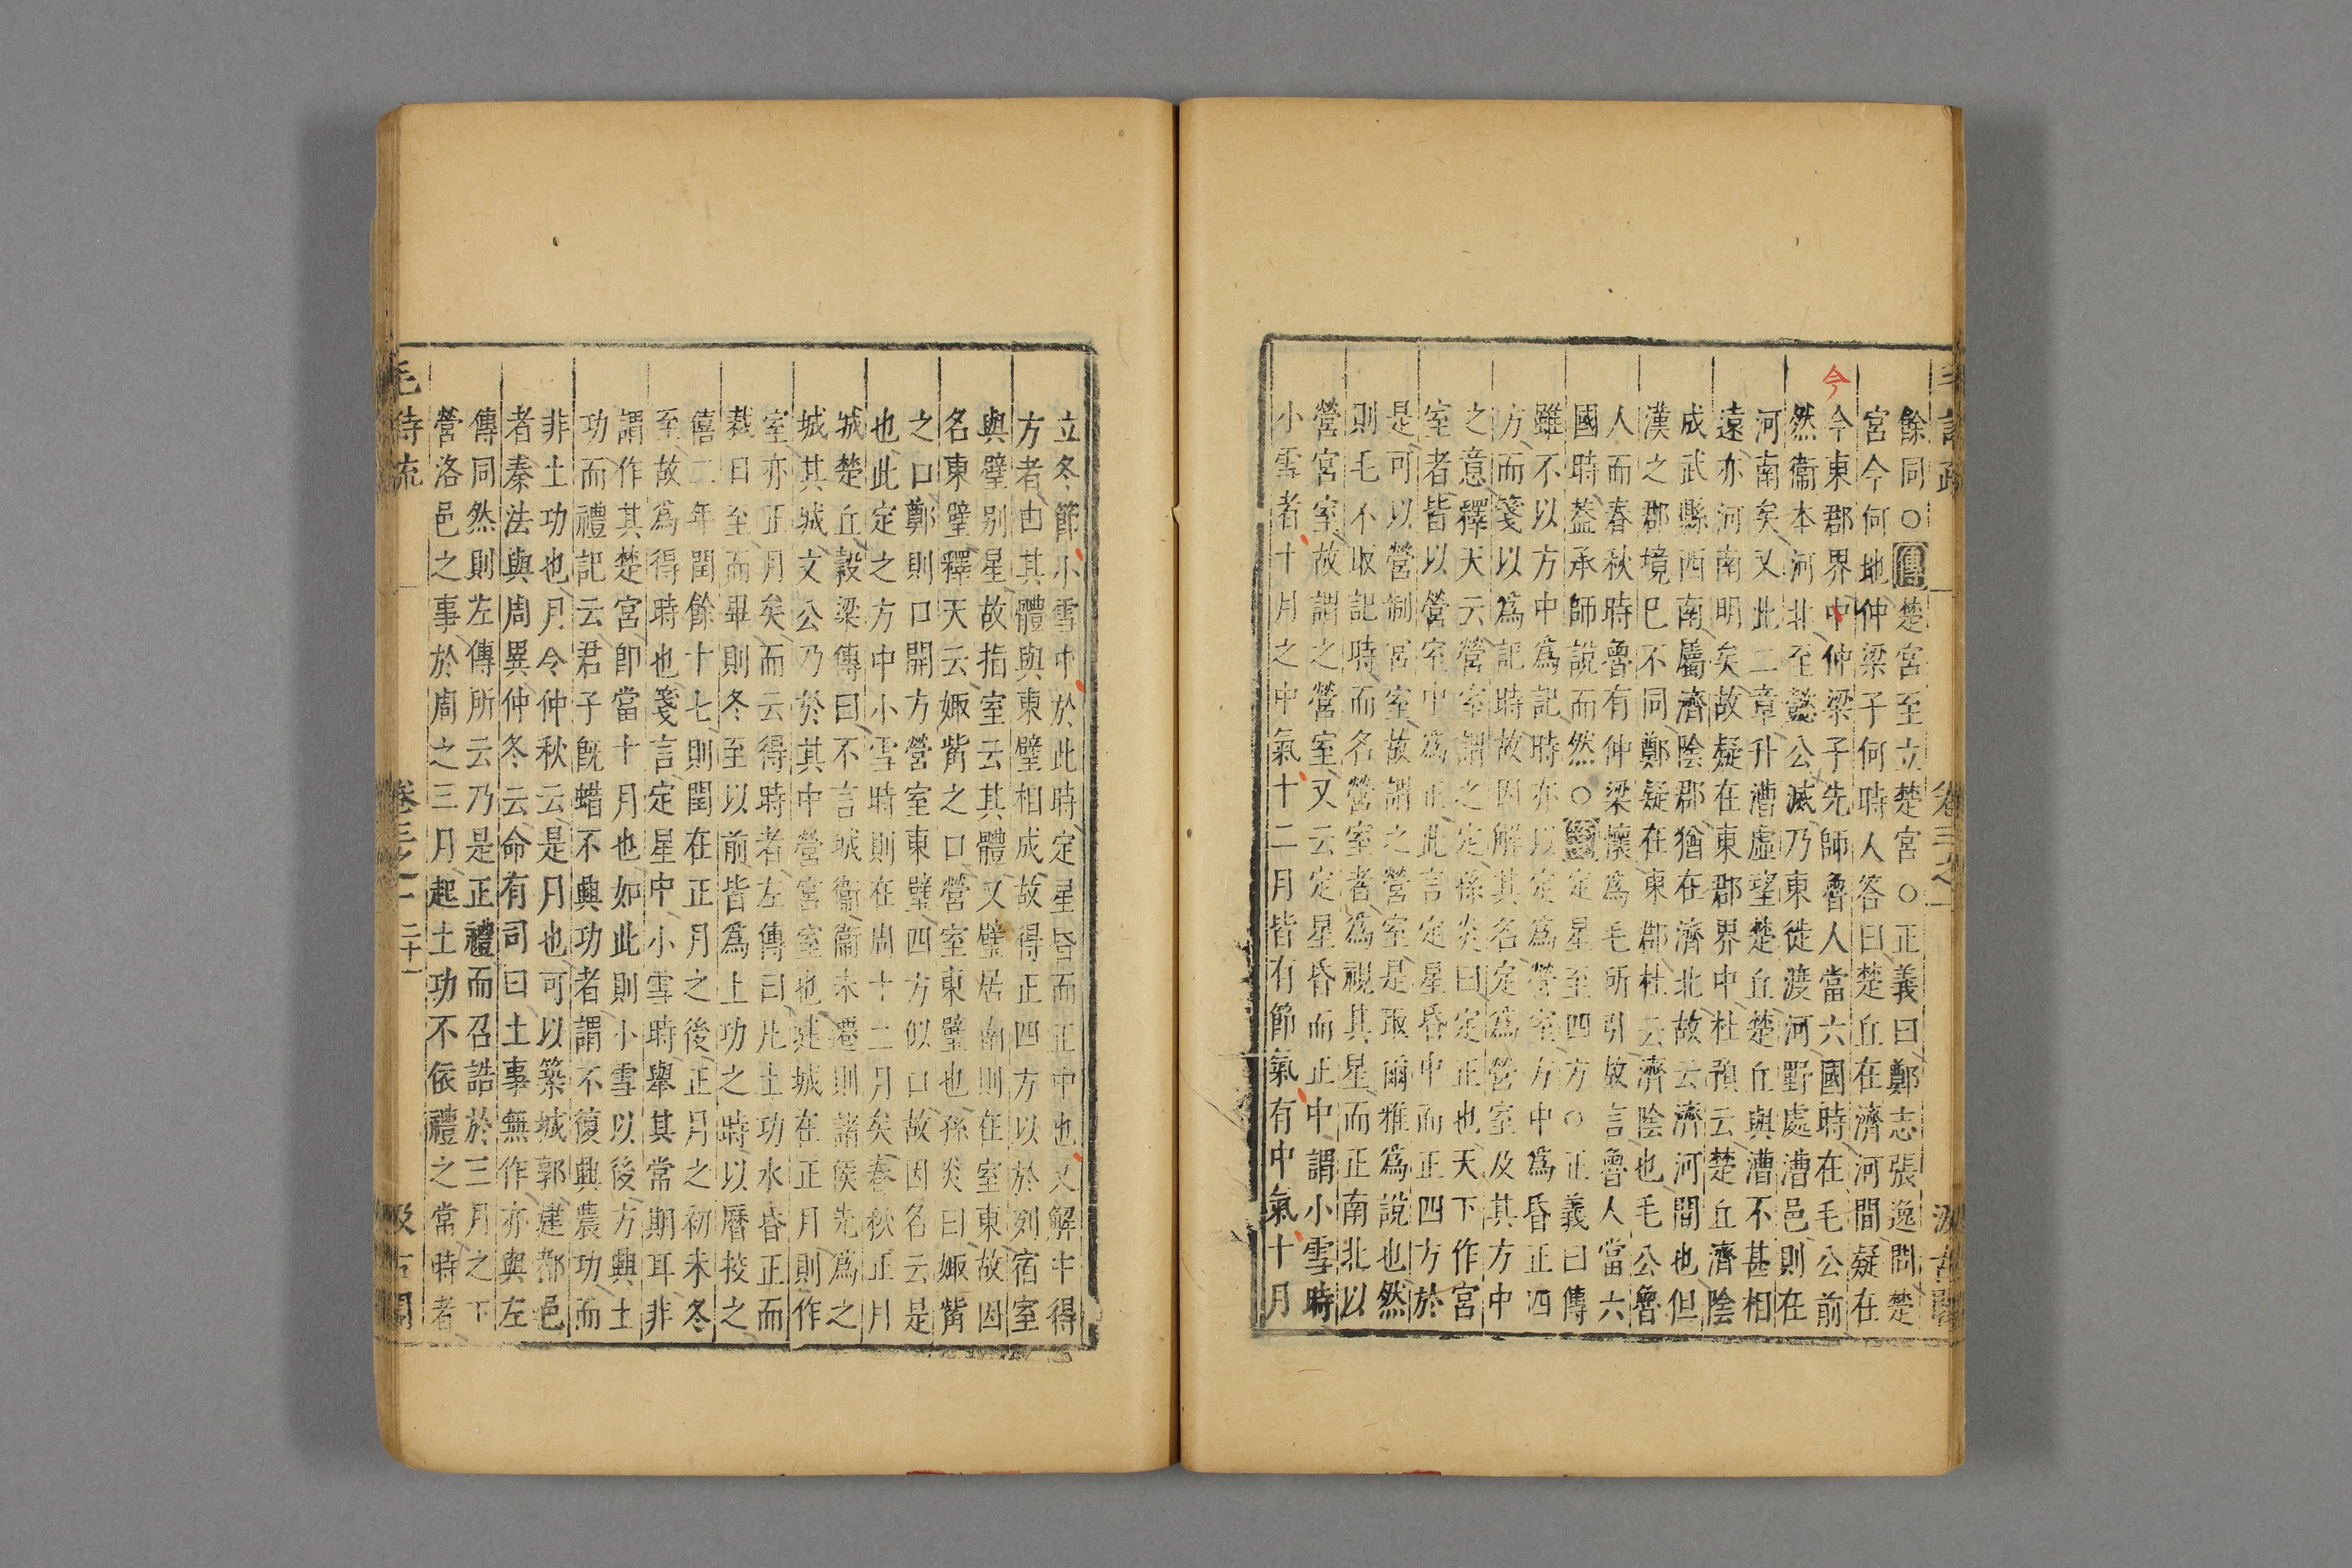 餘同○傳楚宮至立楚宮○正義曰鄭志張逸問楚
宮今何地仲梁子何時人答曰楚丘在濟河間疑在
今
今東郡界中仲梁子先師魯人當六國時在毛公前
然衞本河北至懿公滅乃東徙渡河野處漕邑則在
河南矣又此二章升漕虛望楚丘楚丘與漕不甚相
遠亦河南明矣故疑在東郡界中杜預云楚丘濟陰
成武縣西南屬濟陰郡猶在濟北故云濟河間也但
漢之郡境已不同鄭疑在東郡杜云濟陰也毛公魯
人而春秋時魯有仲梁懷爲毛所引故言魯人當六
國時蓋承師說而然○箋定星至四方○正義曰傳
雖不以方中爲記時亦以定爲營室方中爲昏正四
方而箋以爲記時故因解其名定爲營室及其方中
之意釋天云營室謂之定孫炎曰定正也天下作宮
室者皆以營室中爲正此言定星昏中而正四方於
是可以營制宮室故謂之營室是取爾雅爲說也然
則毛不取記時而名營室者爲視其星而正南北以
營宮室故謂之營室又云定星昏而正中謂小雪時
小雪者十月之中氣十二月皆有節氣有中氣十月
立冬節小雪中於此時定星昏而正中也又解中得
方者由其體與東壁相成故得正四方以於列宿室
與壁別星故指室云其體又壁居南則在室東故因
名東壁釋天云娵觜之口營室東壁也孫炎曰娵觜
之口鄭則口開方營室東壁四方似口故因名云是
也此定之方中小雪時則在周十二月矣春秋正月
城楚丘穀梁傳曰不言城衞衞未遷則諸侯先爲之
城其城文公乃於其中營宮室也建城在正月則作
室亦正月矣而云得時者左傳曰凡土功水昏正而
栽日至而畢則冬至以前皆爲土功之時以曆挍之
僖二年閏餘十七則閏在正月之後正月之初未冬
至故爲得時也箋言定星中小雪時舉其常期耳非
謂作其楚宮卽當十月也如此則小雪以後方興土
功而禮記云君子旣蜡不興功者謂不復興農功而
非土功也月令仲秋云是月也可以築城郭建都邑
者秦法與周異仲冬云命有司曰土事無作亦與左
傳同然則左傳所云乃是正禮而召誥於三月之下
營洛邑之事於周之三月起土功不依禮之常時者
毛詩疏 卷三之一 二十一 汲古閣